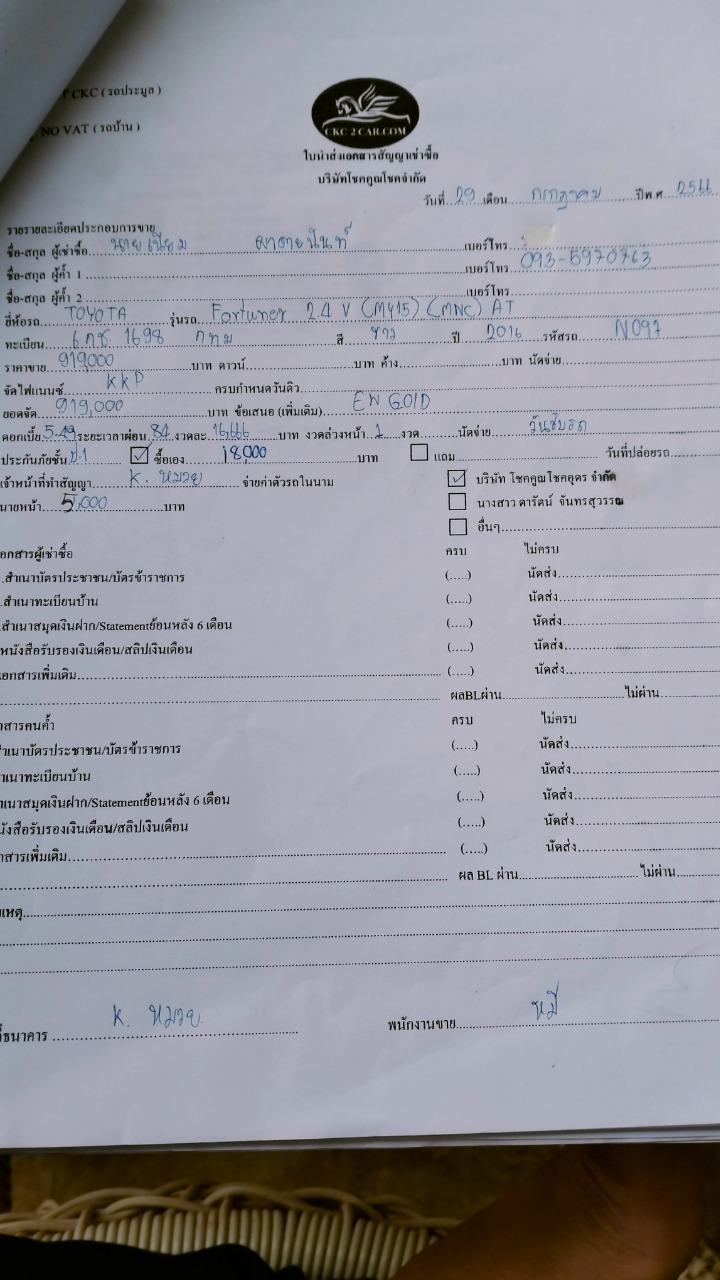 T CKC ( รถประมูล )
NO VAT ( รถบ้าน )
CKC 2 CAR.COM
ใบนำส่งเอกสารสัญญาเช่าซื้อ
บริษัทโชคคูณโชคจำกัด
วันที่ 29 เดือน กรกฎาคม ปีพ.ศ 2566
รายรายละเอียดประกอบการขาย
ชื่อ-สกุล ผู้เช่าซื้อ นายเนียม เบอร์โทร
ชื่อ-สกุล ผู้ค้ำ 1 เบอร์โทร 093-5970763
ชื่อ-สกุล ผู้ค้ำ 2 เบอร์โทร
ยี่ห้อรถ TOYOTA รุ่นรถ Fortuner 2.4 V (MY15) (MNC) AT
ทะเบียน 6 กช 1698 กทม สี ขาว ปี 2016 รหัสรถ N097
ราคาขาย 919,000 บาท ดาวน์ บาท ค้าง บาท นัดจ่าย
จัดไฟแนนซ์ KKP ครบกำหนดวันดิว
ยอดจัด 919,000 บาท ข้อเสนอ (เพิ่มเติม) EW GOLD
ดอกเบี้ย 5.49 ระยะเวลาผ่อน 84 งวดละ 16,666 บาท งวดล่วงหน้า 1 งวด นัดจ่าย วันรับรถ
ประกันภัยชั้น ป.1 ซื้อเอง 18,000 บาท แถม วันที่ปล่อยรถ
เจ้าหน้าที่ทำสัญญา K. หมวย จ่ายค่าตัวรถในนาม บริษัท โชคคูณโชคอุดร จำกัด
นายหน้า 5,000 บาท นางสาว ดารัตน์ จันทรสุวรรณ
อื่นๆ
อกสารผู้เช่าซื้อ ครบ ไม่ครบ
.สำเนาบัตรประชาชน/บัตรข้าราชการ (.....) นัดส่ง
.สำเนาทะเบียนบ้าน (.....) นัดส่ง
.สำเนาสมุดเงินฝาก/Statementย้อนหลัง 6 เดือน (.....) นัดส่ง
หนังสือรับรองเงินเดือน/สลิปเงินเดือน (.....) นัดส่ง
เอกสารเพิ่มเติม (.....) นัดส่ง
ผลBLผ่าน ไม่ผ่าน
าสารคนค้ำ ครบ ไม่ครบ
สำเนาบัตรประชาชน/บัตรข้าราชการ (.....) นัดส่ง
าเนาทะเบียนบ้าน (.....) นัดส่ง
าเนาสมุดเงินฝาก/Statementย้อนหลัง 6 เดือน (.....) นัดส่ง
นังสือรับรองเงินเดือน/สลิปเงินเดือน (.....) นัดส่ง
าสารเพิ่มเติม (.....) นัดส่ง
ผล BL ผ่าน ไม่ผ่าน
เหตุ
K. หมวย หมี
ธนาคาร พนักงานขาย